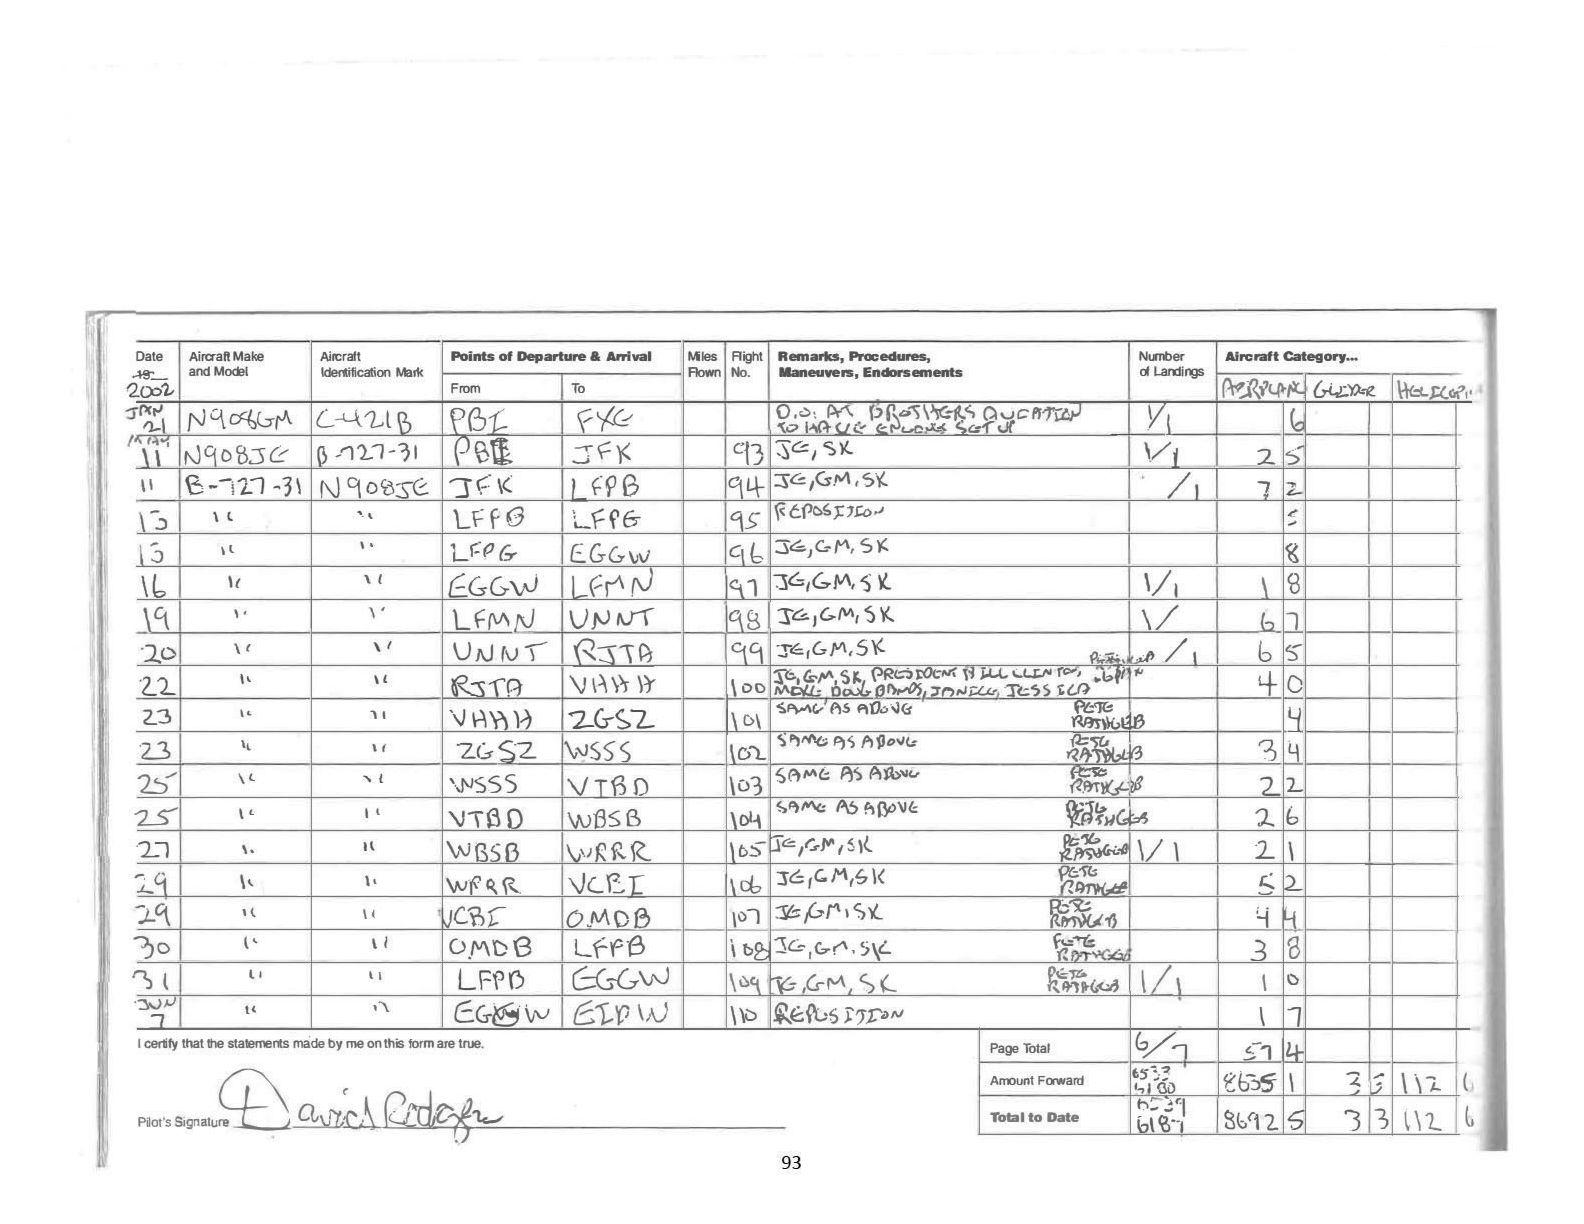 Date Aircraft Make Aircraft Points of Departure & Arrival Miles Flight Remarks, Procedures, Number Aircraft Category...
19 and Model Identification Mark Flown No. Maneuvers, Endorsements of Landings
2002 From To AIRPLANE GLIDER HELICOP
JAN 21 N908GM C-421B PBI FXE D.D. AT BROTHERS 1/1 6
TO HAVE SET UP
MAY 11 N908JE B-727-31 PBI JFK 93 JE, SK 1/1 2 5
11 B-727-31 N908JE JFK LFPB 94 JE, GM, SK /1 7 2
13 " " LFPB LFPG 95 REPOSITION 5
15 " " LFPG EGGW 96 JE, GM, SK 8
16 " " EGGW LFMN 97 JE, GM, SK 1/1 1 8
19 " " LFMN UNNT 98 JE, GM, SK 1/ 6 7
20 " " UNNT RJTA 99 JE, GM, SK /1 6 5
22 " " RJTA VHHH 100 JE, GM, SK, PRESIDENT BILL CLINTON, 4 0
MIKE, DOUG BANDS, JANICE, JESSICA
23 " " VHHH ZGSZ 101 SAME AS ABOVE PETE RATHGEB 4
23 " " ZGSZ WSSS 102 SAME AS ABOVE PETE RATHGEB 3 4
25 " " WSSS VTBD 103 SAME AS ABOVE PETE RATHGEB 2 2
25 " " VTBD WBSB 104 SAME AS ABOVE PETE RATHGEB 2 6
27 " " WBSB WRRR 105 JE, GM, SK PETE RATHGEB 1/1 2 1
29 " " WRRR VCBI 106 JE, GM, SK PETE RATHGEB 5 2
29 " " VCBI OMDB 107 JE, GM, SK PETE RATHGEB 4 4
30 " " OMDB LFPB 108 JE, GM, SK PETE RATHGEB 3 8
31 " " LFPB EGGW 109 JE, GM, SK PETE RATHGEB 1/1 1 0
JUN 7 " " EGGW EIDW 110 REPOSITION 1 7
I certify that the statements made by me on this form are true.
Page Total 6/7 57 4
Amount Forward 6533 6180 8635 1 3 3 112 6
Pilot's Signature David Rodgers
Total to Date 6539 6187 8692 5 3 3 112 6
93